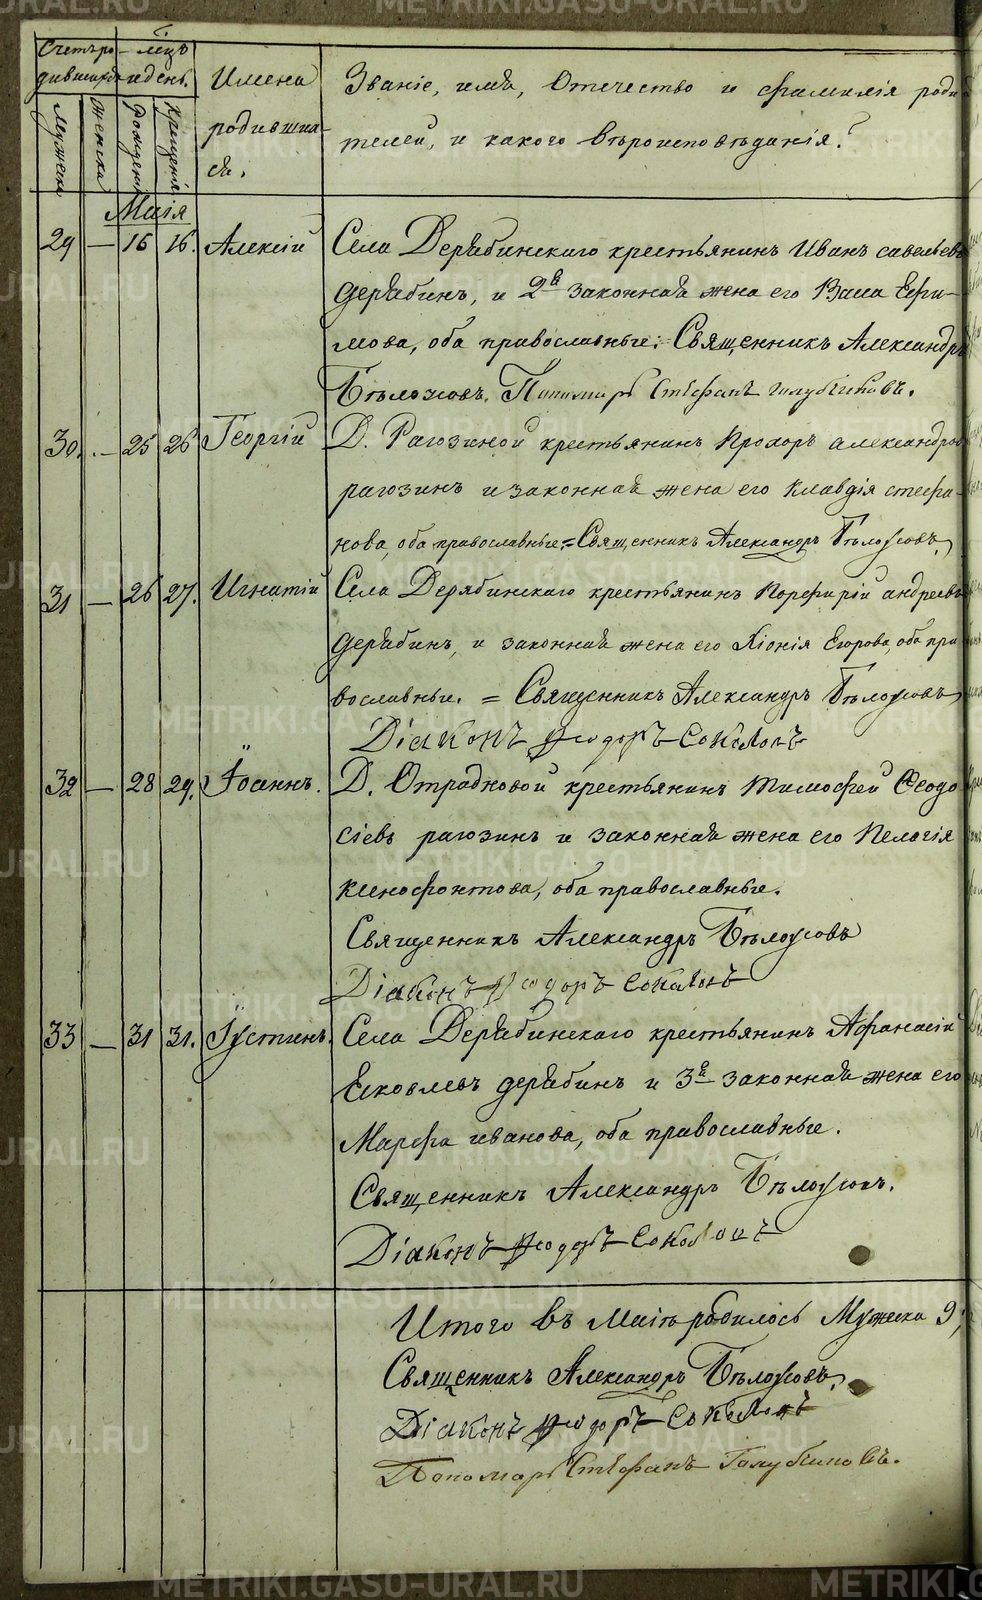 Счетъ ро-
дившихся
Мѣсяцъ
и день.
Мужеска
Женска
Рожденія
Крещенія
Имена
родивших-
ся.
Званіе, имя, Отечество и фамилія роди
телей, и какого вѣроисповѣданія?
Маія
29 — 15 16. Алексій Села Дерябинскаго крестьянинъ Иванъ савельевъ
дерябинъ, и 2я законная жена его Васса Ефи-
мова, оба православные: Священникъ Александръ
Бѣлоусовъ. Пономарь Стефанъ голубчиковъ.
30. — 25 26 Георгій Д. Рагозиной крестьянинъ Прохоръ александровъ
рагозинъ и законная жена его Клавдія стефа-
нова, оба православные = Священникъ Александръ Бѣлоусовъ
31 — 26 27. Игнатій Села Дерябинскаго крестьянинъ Порфирій андреевъ
дерябинъ, и законная жена его Хіонія Егорова, оба пра
вославные. = Священникъ Александръ Бѣлоусовъ
Діаконъ Феодоръ Соколовъ
32 — 28 29. Іоаннъ. Д. Отрадновой крестьянинъ Тимофей Ѳеодо
сіевъ рагозинъ и законная жена его Пелагія
ксенофонтова, оба православные.
Священникъ Александръ Бѣлоусовъ
Діаконъ Феодоръ Соколовъ
33 — 31 31. Іустинъ. Села Дерябинскаго крестьянинъ Афанасій
Яковлевъ дерябинъ и 3я законная жена его
Марфа иванова, оба православные.
Священникъ Александръ Бѣлоусовъ.
Діаконъ Феодоръ Соколовъ
Итого въ Маіѣ родилось Мужеска 9,
Священникъ Александръ Бѣлоусовъ,
Діаконъ Феодоръ Соколовъ
Пономарь Стефанъ Голубчиковъ.
METRIKI.GASO-URAL.RU